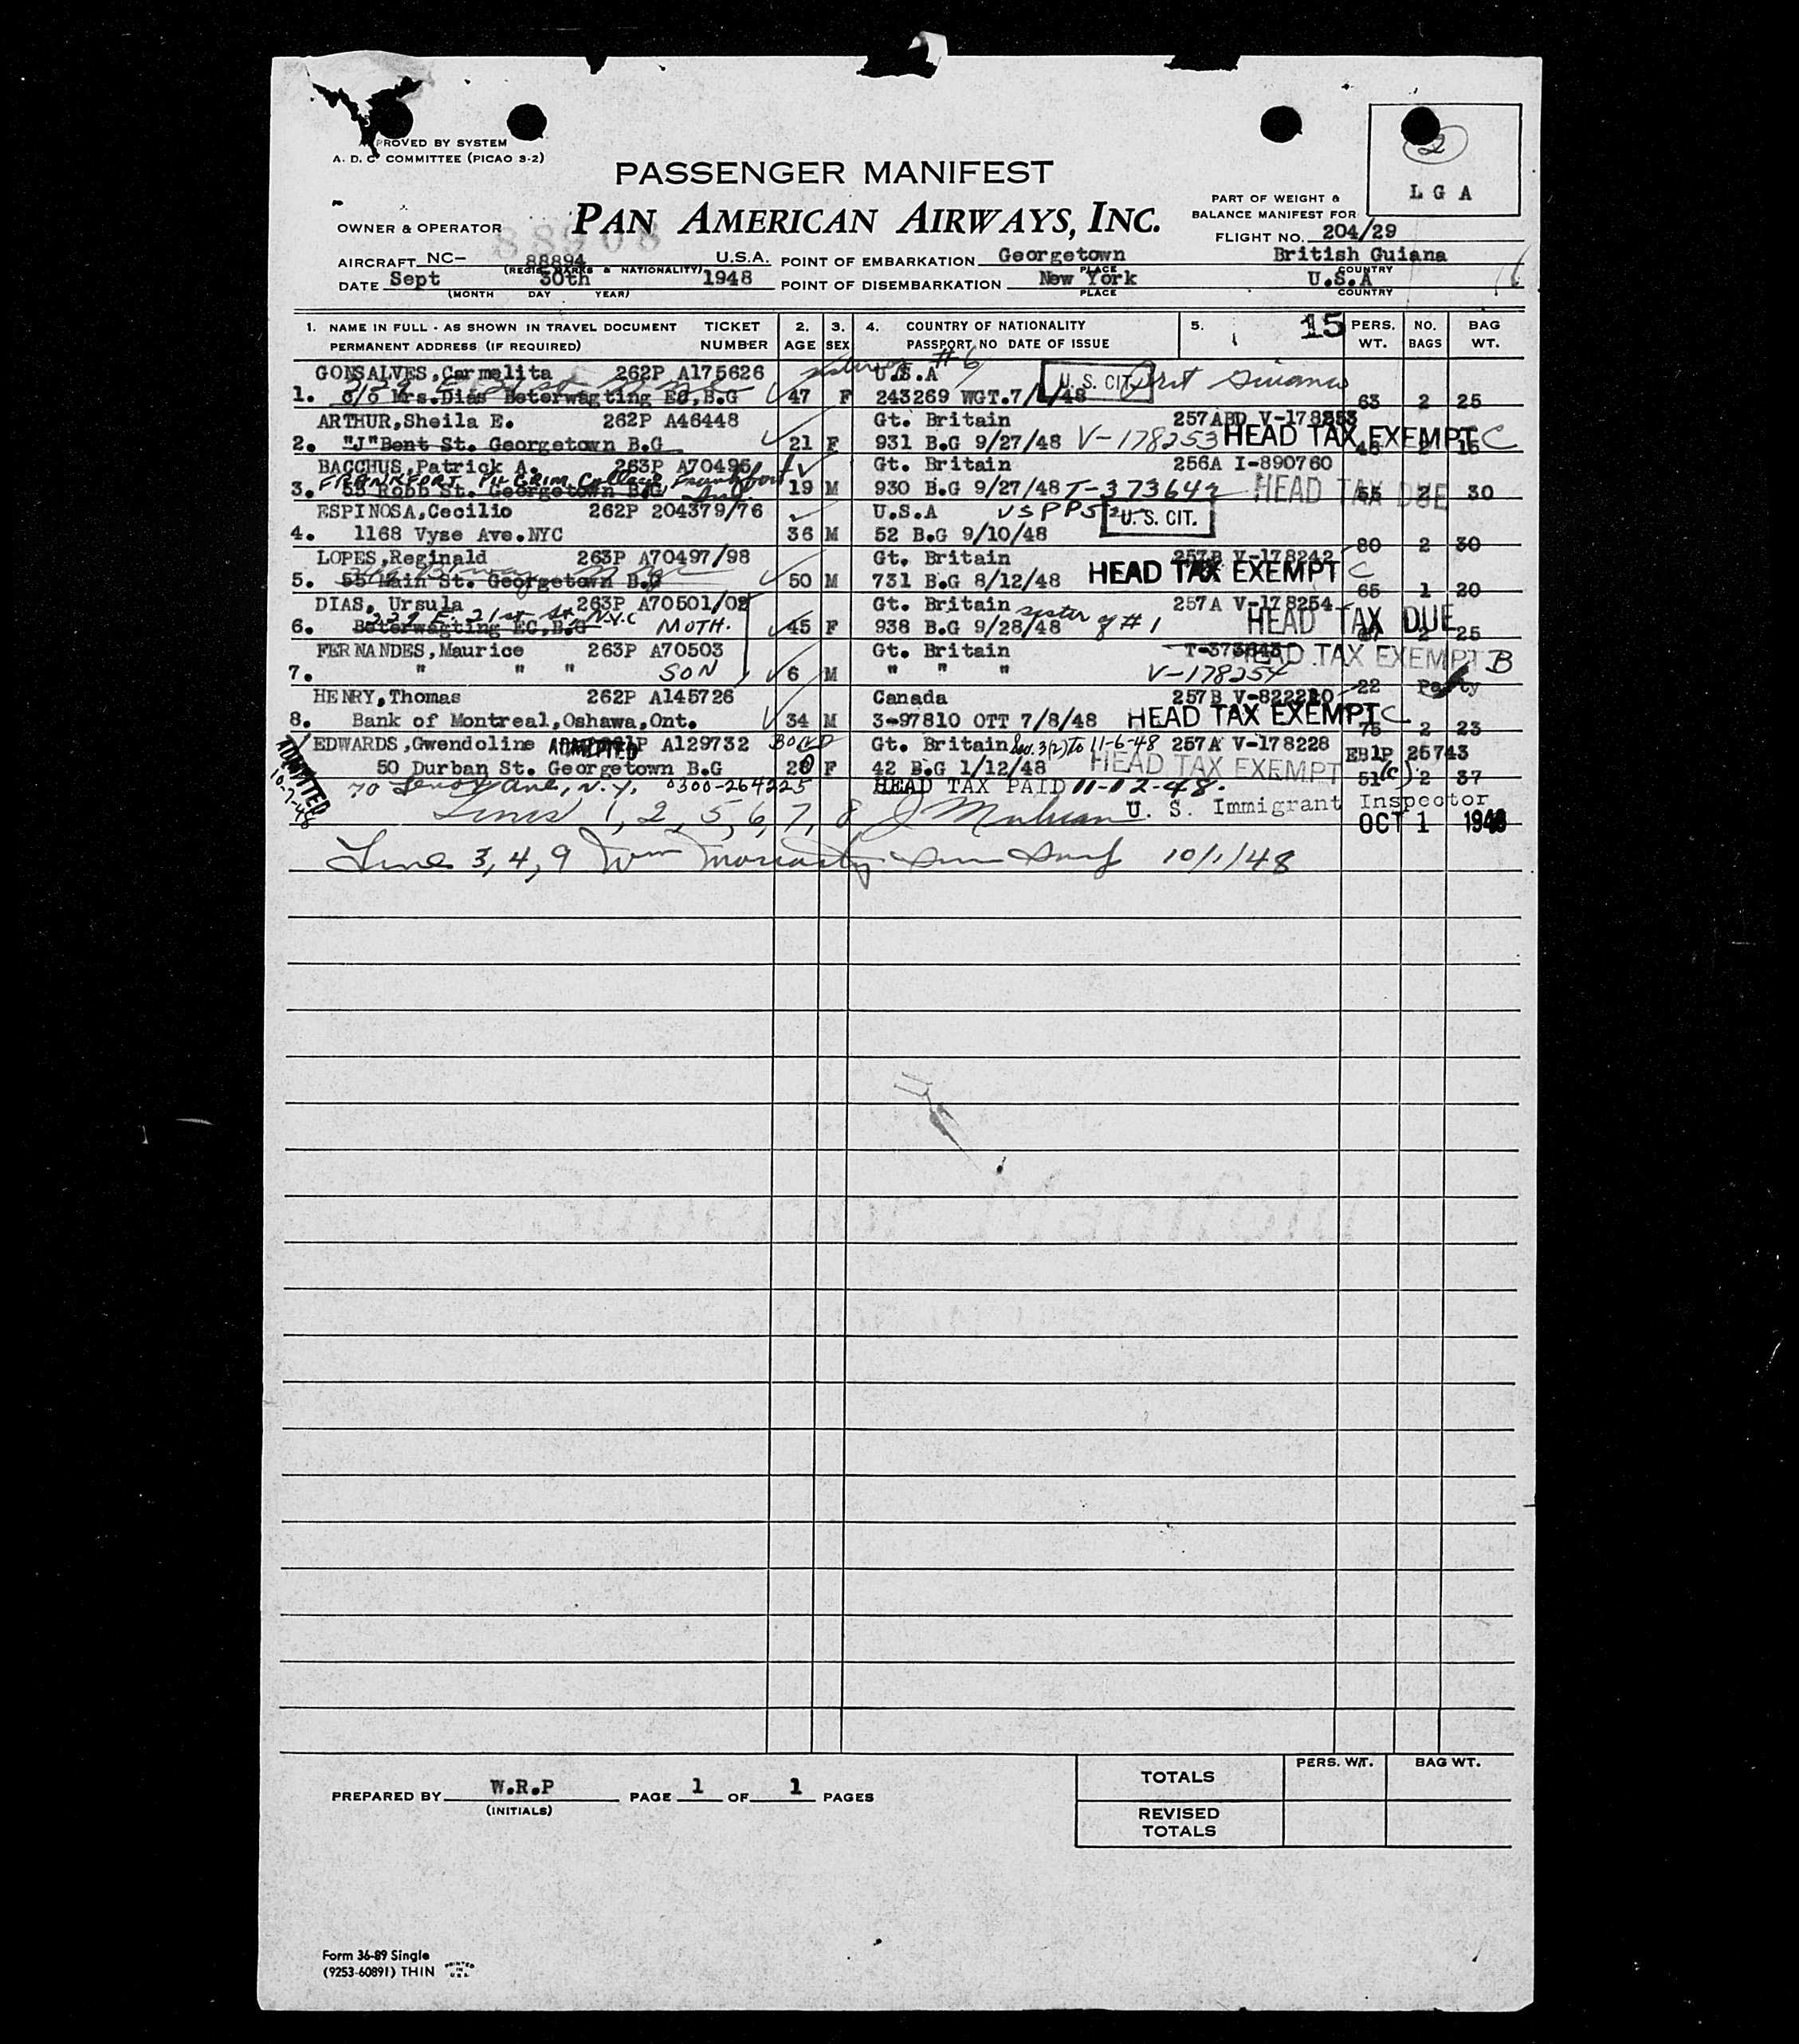 APPROVED BY SYSTEM
A. D. C. COMMITTEE (PICAO 3-2)
2
L G A
PASSENGER MANIFEST
PAN AMERICAN AIRWAYS, INC.
PART OF WEIGHT &
BALANCE MANIFEST FOR
OWNER & OPERATOR
88908
FLIGHT NO. 204/29
AIRCRAFT NC- 88894 U.S.A. POINT OF EMBARKATION Georgetown British Guiana
(REGIS. MARKS & NATIONALITY) PLACE COUNTRY
DATE Sept 30th 1948 POINT OF DISEMBARKATION New York U.S.A
(MONTH DAY YEAR) PLACE COUNTRY
1. NAME IN FULL - AS SHOWN IN TRAVEL DOCUMENT TICKET 2. 3. 4. COUNTRY OF NATIONALITY 5. 15 PERS. NO. BAG
PERMANENT ADDRESS (IF REQUIRED) NUMBER AGE SEX PASSPORT NO DATE OF ISSUE WT. BAGS WT.
GONSALVES, Carmelita 262P A175626 sister #6 U.S.A U. S. CIT.
1. c/o Mrs. Dias Beterwagting EC, B.G 47 F 243269 WGT. 63 2 25
ARTHUR, Sheila E. 262P A46448 Gt. Britain 257ABD V-178253
2. "J" Bent St. Georgetown B.G 21 F 931 B.G 9/27/48 V-178253 HEAD TAX EXEMPT C
BACCHUS, Patrick A. 263P A70496 Gt. Britain 256A I-890760
FRANKFORT PILGRIM College, Frankfort Ind
3. 55 Robb St. Georgetown B.G 19 M 930 B.G 9/27/48 T-373642 HEAD TAX DUE 55 2 30
ESPINOSA, Cecilio 262P 204379/76 U.S.A USPP52 U. S. CIT.
4. 1168 Vyse Ave. NYC 36 M 52 B.G 9/10/48 80 2 30
LOPES, Reginald 263P A70497/98 Gt. Britain 257B V-178242
5. 55 Main St. Georgetown B.G 50 M 731 B.G 8/12/48 HEAD TAX EXEMPT C 65 1 20
DIAS, Ursula 263P A70501/02 Gt. Britain 257A V-178254
229 E. 21st St. N.Y.C sister of #1 HEAD TAX DUE
6. Beterwagting EC, B.G MOTH. 45 F 938 B.G 9/28/48 2 25
FERNANDES, Maurice 263P A70503 Gt. Britain T-373643 HEAD TAX EXEMPT B
7. " " " SON 6 M " " " V-178254 22 Party
HENRY, Thomas 262P A145726 Canada 257B V-822210
8. Bank of Montreal, Oshawa, Ont. 34 M 3-97810 OTT 7/8/48 HEAD TAX EXEMPT C 75 2 23
EDWARDS, Gwendoline ADMITTED A129732 BOND Gt. Britain Sec. 3(2) To 11-6-48 257A V-178228 EB1P 26743
ADMITTED 10-7-48 50 Durban St. Georgetown B.G 20 F 42 B.G 1/12/48 HEAD TAX EXEMPT (c) 51 2 37
70 Lenox Ave, N.Y. 0300-264225 HEAD TAX PAID 11-12-48.
Lines 1, 2, 5, 6, 7, 8 U. S. Immigrant Inspector
OCT 1 1948
Line 3, 4, 9 Wm Moriarty 10/1/48
TOTALS PERS. WT. BAG WT.
REVISED
TOTALS
PREPARED BY W.R.P PAGE 1 OF 1 PAGES
(INITIALS)
Form 36-89 Single
(9253-60891) THIN PRINTED IN U.S.A.